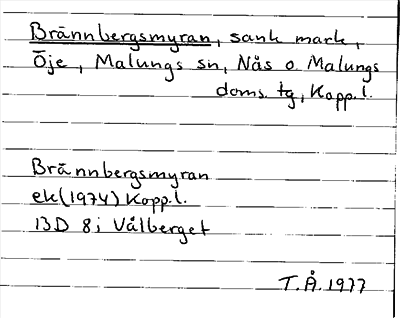 Brännbergsmyran, sank mark,
Öje, Malungs sn, Nås o. Malungs
doms. tg, Kopp.l.
Brännbergsmyran
ek(1974) Kopp.l.
13D 8i Vålberget
T.Å.1977